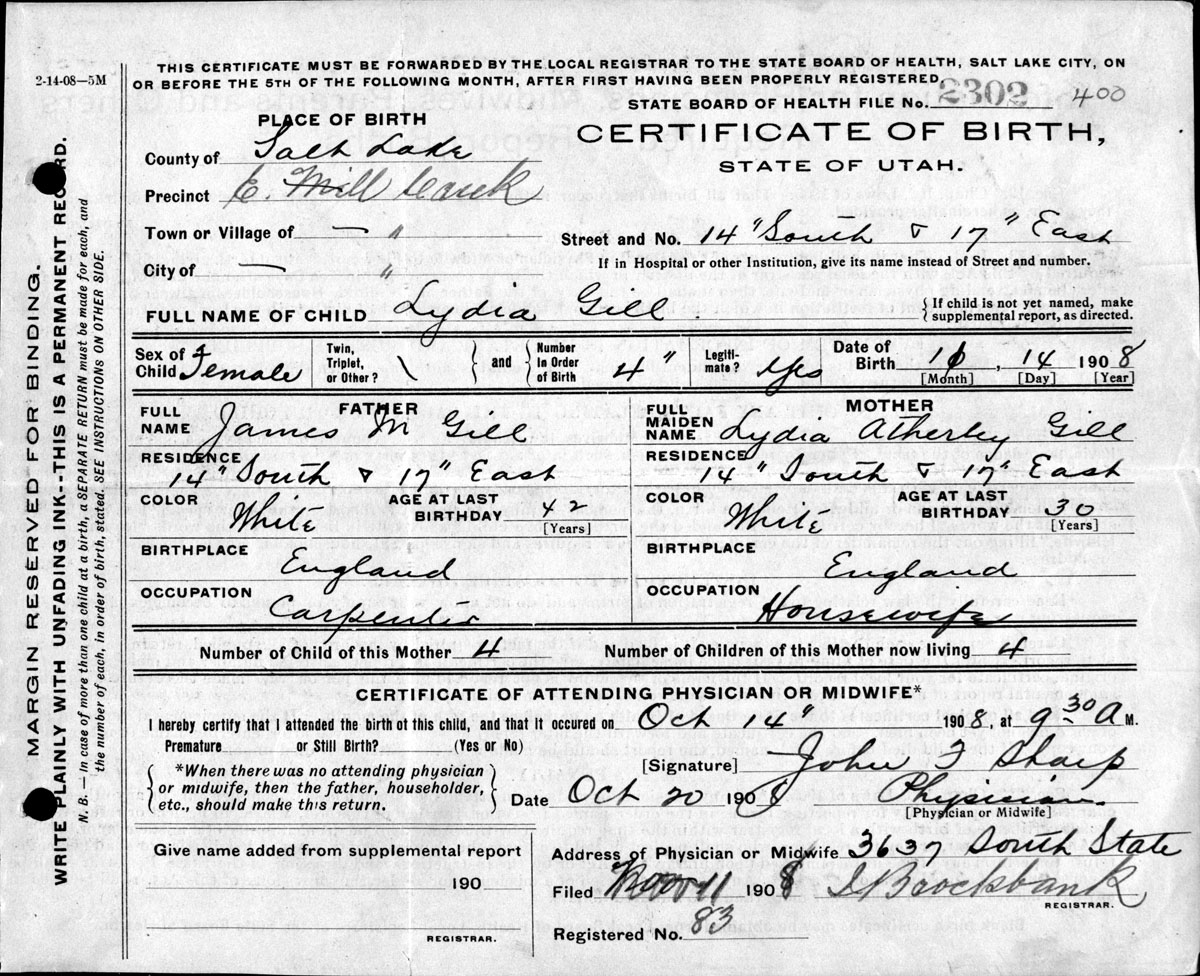 2-14-08—5M
THIS CERTIFICATE MUST BE FORWARDED BY THE LOCAL REGISTRAR TO THE STATE BOARD OF HEALTH, SALT LAKE CITY, ON
OR BEFORE THE 5TH OF THE FOLLOWING MONTH, AFTER FIRST HAVING BEEN PROPERLY REGISTERED
STATE BOARD OF HEALTH FILE No. 2302 400
PLACE OF BIRTH
CERTIFICATE OF BIRTH,
STATE OF UTAH.
County of Salt Lake
Precinct E. Mill Creek
Town or Village of — "
Street and No. 14" South & 17" East
If in Hospital or other Institution, give its name instead of Street and number.
City of — "
FULL NAME OF CHILD Lydia Gill
{If child is not yet named, make
supplemental report, as directed.
Sex of Child Female
Twin, Triplet, or Other? \ } and { Number in Order of Birth 4"
Legiti-mate? Yes
Date of Birth 10, 14 1908
[Month] [Day] [Year]
FATHER
FULL NAME James M Gill
RESIDENCE
14" South & 17" East
COLOR White
AGE AT LAST BIRTHDAY 42
[Years]
BIRTHPLACE
England
OCCUPATION
Carpenter
MOTHER
FULL MAIDEN NAME Lydia Atherley Gill
RESIDENCE
14" South & 17" East
COLOR White
AGE AT LAST BIRTHDAY 30
[Years]
BIRTHPLACE
England
OCCUPATION
Housewife
Number of Child of this Mother 4 Number of Children of this Mother now living 4
CERTIFICATE OF ATTENDING PHYSICIAN OR MIDWIFE*
I hereby certify that I attended the birth of this child, and that it occured on Oct 14" 1908, at 9 30 A M.
Premature or Still Birth? (Yes or No)
*When there was no attending physician
or midwife, then the father, householder,
etc., should make this return.
[Signature] John F Sharp
Date Oct 20 1908 Physician
[Physician or Midwife]
Give name added from supplemental report
190
REGISTRAR.
Address of Physician or Midwife 3637 South State
Filed Nov 11 1908 Brockbank
REGISTRAR.
Registered No. 83
MARGIN RESERVED FOR BINDING.
WRITE PLAINLY WITH UNFADING INK--THIS IS A PERMANENT RECORD.
N. B.—In case of more than one child at a birth, a SEPARATE RETURN must be made for each, and
the number of each, in order of birth, stated. SEE INSTRUCTIONS ON OTHER SIDE.